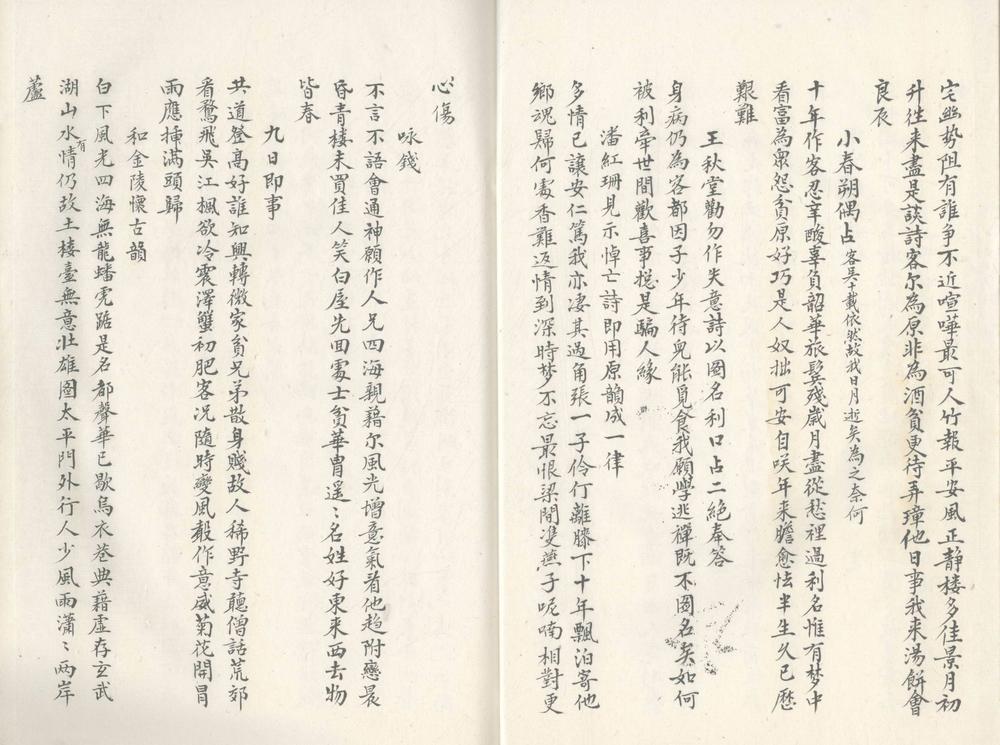 宅幽勢阻有誰争不近喧嘩最可人竹報平安風正静楼多佳景月初
升往来盡是談詩客尔為原非為酒貧更待弄璋他日事我来湯餅會
良辰
小春朔偶占 客吳十載依然故我日月逝矣為之奈何
十年作客忍辛酸辜負韶華旅鬂殘歲月盡從愁裡過利名惟有梦中
看富為衆怨貧原好巧是人奴拙可安自咲年来膽愈怯半生久已歷
艱難
王秋堂勸勿作失意詩以圖名利口占二絶奉答
身病仍為客都因子少年待児能覓食我願學逃禪既不圖名矣如何
被利牽世間歡喜事揔是騙人緣
潘紅珊見示悼亡詩即用原韻成一律
多情已讓安仁篤我亦凄其過角張一子伶仃離膝下十年飄泊寄他
鄉魂歸何處香難返情到深時梦不忘最恨梁間雙燕子呢喃相對更
心傷
咏錢
不言不語會通神願作人兄四海親藉尔風光增意氣看他趋附戀晨
昏青楼未買佳人笑白屋先回處士貧華胄遥〻名姓好東来西去物
皆春
九日即事
共道登高好誰知興轉微家貧兄弟散身賤故人稀野寺聽僧話荒郊
看鶩飛吳江楓欲冷震澤蟹初肥客况隨時變風穀作意威菊花開冒
雨應揷满頭歸
和金陵懷古韻
白下風光四海無龍蟠虎踞是名都聲華已歇烏衣巷典藉虛存玄武
湖山水有情仍故土楼臺無意壮雄圖太平門外行人少風雨瀟〻两岸
蘆